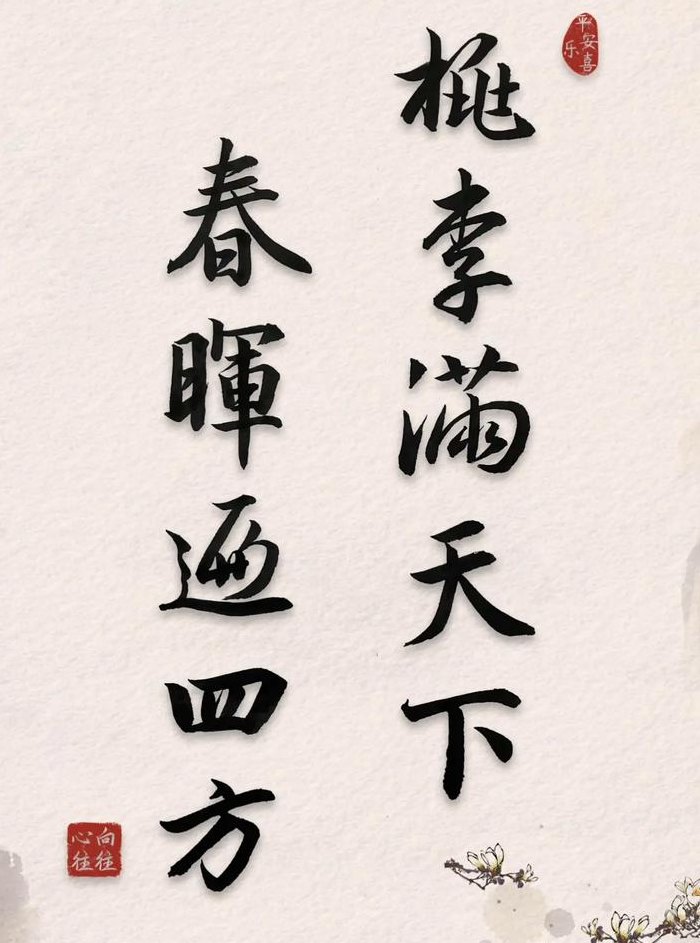 平安喜乐
桃李满天下
春暉遍四方
心向往往